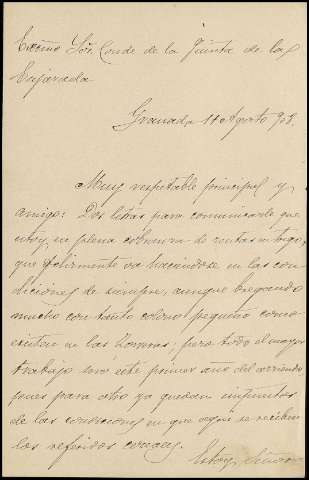 Excmo Sor. Conde de la Quinta de la
Enjarada
Granada 11 Agosto 908.
Muy respetable principal y
amigo: Dos letras para comunicarle que
estoy en plena cobranza de rentas en trigo,
que felizmente va haciendose en las con
diciones de siempre, aunque bregando
mucho con tanto colono pequeño como
existen en las Zorreras; pero todo el mayor
trabajo será este primer año del arriendo
pues para otro ya quedan impuestos
de las condiciones en que aqui se reciben
los referidos
Estoy, Señor